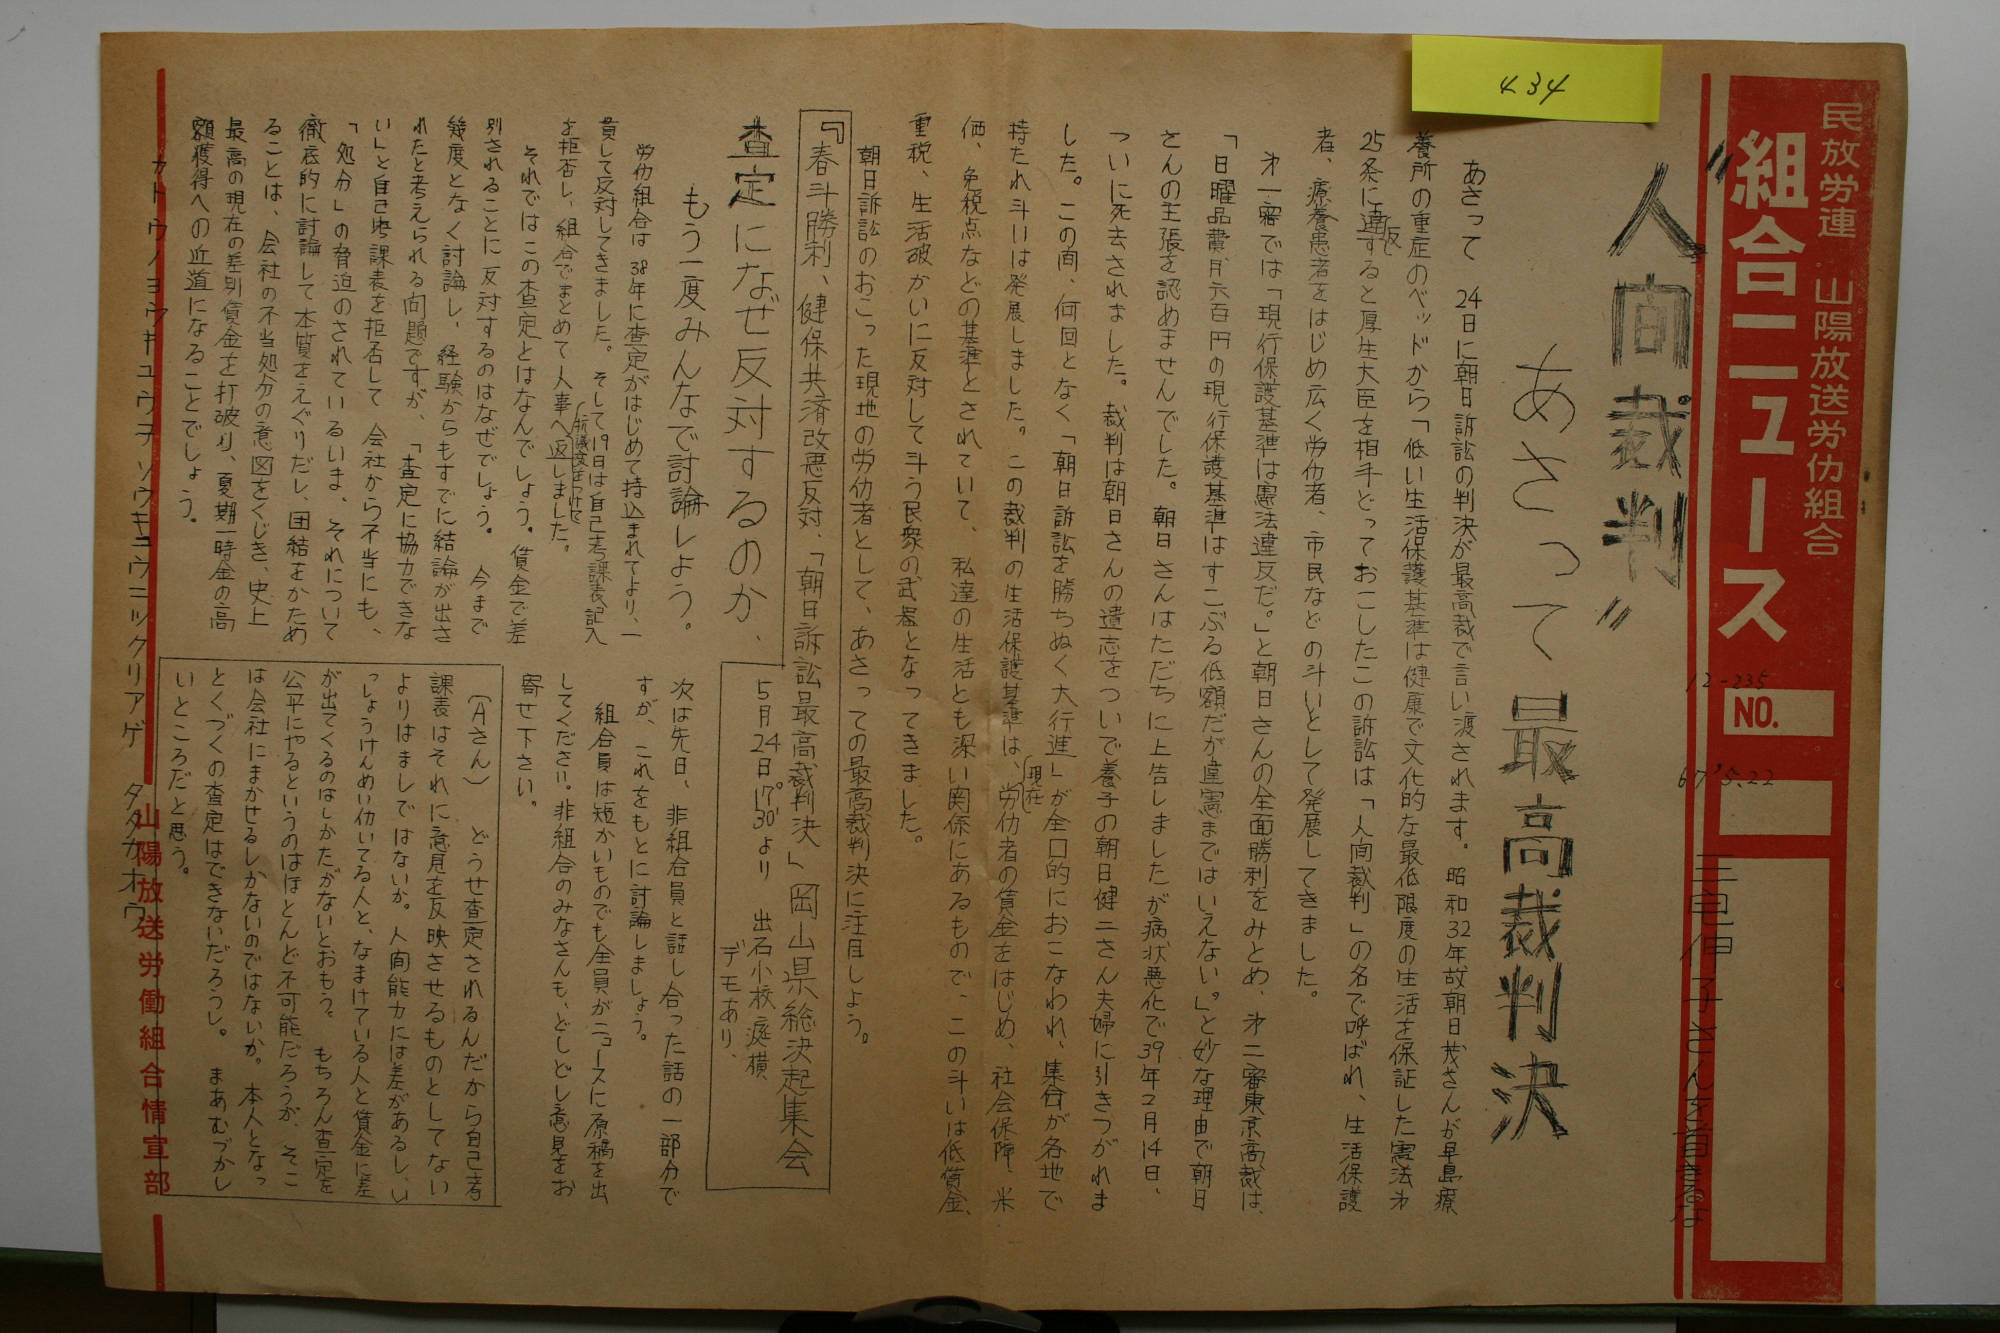 434
民放労連 山陽放送労仂組合
組合ニュース
NO.
12-235
67'5.22
三宅伸子さんを首きるな
"人间裁判"
あさって最高裁判決
あさって 24日に朝日訴訟の判決が最高裁で言い渡されます。昭和32年故朝日茂さんが早島療
養所の重症のベッドから「低い生活保護基準は健康で文化的な最低限度の生活を保証した憲法才
25条に違反すると厚生大臣を相手どっておこしたこの訴訟は「人间裁判」の名で呼ばれ、生活保護
者、療養患者をはじめ広く労仂者、市民などの斗いとして発展してきました。
才一審では「現行保護基準は憲法違反だ。」と朝日さんの全面勝利をみとめ、才二審東京高裁は、
「日曜品費月六百円の現行保護基準はすこぶる低額だが違憲まではいえない。」と妙な理由で朝日
さんの主張を認めませんでした。朝日さんはただちに上告しましたが病状悪化で39年2月14日、
ついに死去されました。裁判は朝日さんの遺志をついで養子の朝日健二さん夫婦に引きつがれま
した。この间、何回となく「朝日訴訟を勝ちぬく大行進」が全口的におこなわれ、集会が各地で
持たれ斗いは発展しました。この裁判の生活保護基準は、現在労仂者の賃金をはじめ、社会保障、米
価、免税点などの基準とされていて、私達の生活とも深い関係にあるもので、この斗いは低賃金、
重税、生活破かいに反対して斗う民衆の武器となってきました。
朝日訴訟のおこった現地の労仂者として、あさっての最高裁判決に注目しよう。
『春斗勝利、健保共済改悪反対、「朝日訴訟最高裁判決」岡山県総決起集会
5月24日 17°30'より 出石小校庭横、
デモあり、
査定になぜ反対するのか、
もう一度みんなで討論しよう。
労仂組合は38年に査定がはじめて持込まれてより、一
貫して反対してきました。そして19日は自己考課表記入
を拒否し、組合でまとめて人事へ抗議文をつけて返しました。
それではこの査定とはなんでしょう。賃金で差
別されることに反対するのはなぜでしょう。 今まで
幾度となく討論し、経験からもすでに結論が出さ
れたと考えられる问題ですが、「査定に協力できな
い」と自己考課表を拒否して 会社から不当にも、
「処分」の脅迫のされているいま、それについて
徹底的に討論して本質をえぐりだし、団結をかため
ることは、会社の不当処分の意図をくじき、史上
最高の現在の差別賃金を打破り、夏期一時金の高
額獲得への近道になることでしょう。
次は先日、非組合員と話し合った話の一部分で
すが、これをもとに討論しましょう。
組合員は短かいものでも全員がニュースに原稿を出
してください。非組合のみなさんも、どしどし意見をお
寄せ下さい。
(Aさん) どうせ査定されるんだから自己考
課表はそれに意見を反映させるものとしてない
よりはましではないか。人间能力には差があるし、い
っしょうけんめい仂いてる人と、なまけている人と賃金に差
が出てくるのはしかたがないとおもう。もちろん査定を
公平にやるというのはほとんど不可能だろうが、そこ
は会社にまかせるしかないのではないか。本人となっ
とくづくの査定はできないだろうし。 まあむづかし
いところだと思う。
カトウノヨウキュウヲ ソウキュウニツクリアゲ タタカオウ
山陽放送労働組合情宣部